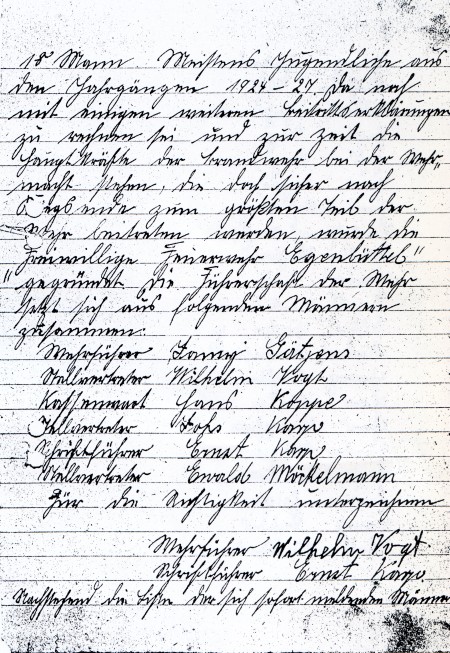 18 Mann. Meistens Jugendliche aus
den Jahrgängen 1924-27. Da noch
mit einigen weiteren Beitrittserklärungen
zu rechnen sei und zur Zeit die
Hauptkräfte der Brandwehr bei der Wehr-
macht stehen, die doch sicher nach
Kriegsende zum größten Teil der
Wehr beitreten werden, wurde die
Freiwillige Feuerwehr Egenbüttel"
"gegründet. Die Führerschaft der Wehr
setzt sich aus folgenden Männern
zusammen:
Wehrführer
Stellvertreter Wilhelm Vogt
Kassenwart Hans Koppe
Stellvertreter Johs
Schriftführer Ernst
Stellvertreter Ewald Möckelmann
Für die Richtigkeit unterzeichnen
Wehrführer Wilhelm Vogt
Schriftführer Ernst
Nachstehend die Liste der sich sofort meldenden Männer